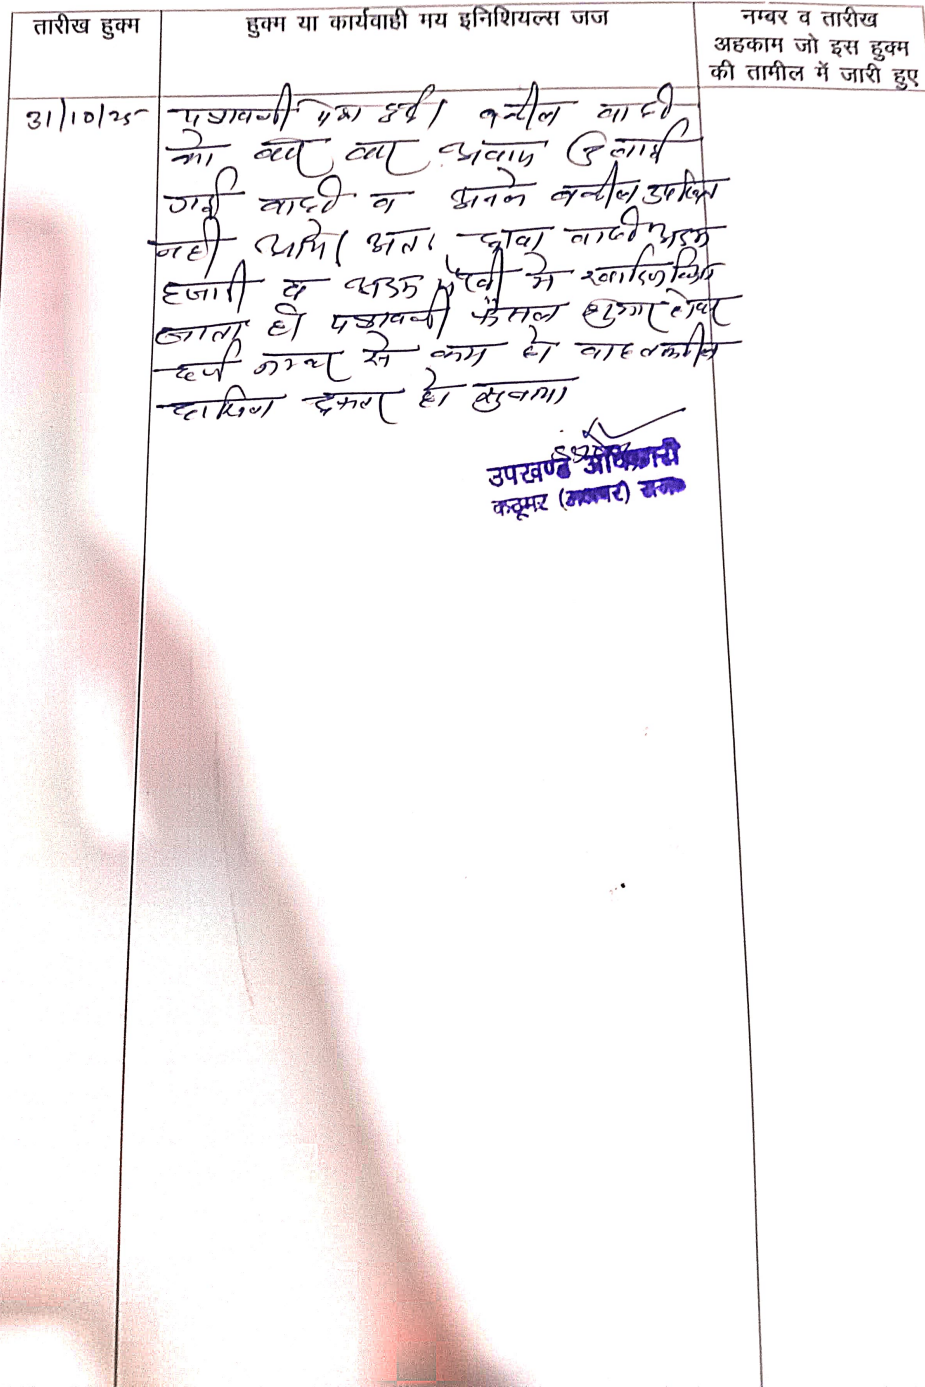 तारीख हुक्म
हुक्म या कार्यवाही मय इनिशियल्स जज
नम्बर व तारीख
अहकाम जो इस हुक्म
की तामील में जारी हुए
31/10/25
पत्रावली पेश हुई। वकील वादी
को बार बार आवाज दिलाई
गई वादी व उनके वकील उपस्थित
नही आये। अतः दावा वादी अदम
हजारी व अदम पैरवी मे खारिज किया
जाता है। पत्रावली फैसल शुमार होकर
दर्ज नम्बर से कम हो बाद तकमील
दाखिल दफ्तर हो
उपखण्ड अधिकारी
कठूमर (अलवर) राज०